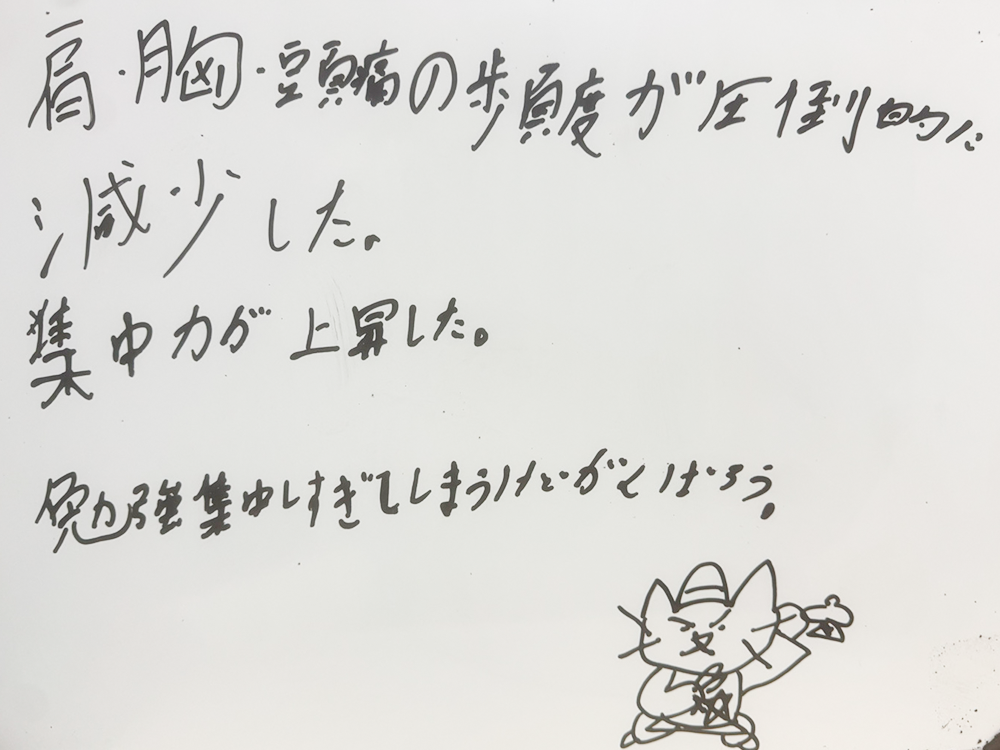 肩・胸・頭痛の頻度が圧倒的に
減少した。
集中力が上昇した。
勉強集中しすぎてしまうけどがんばろう。